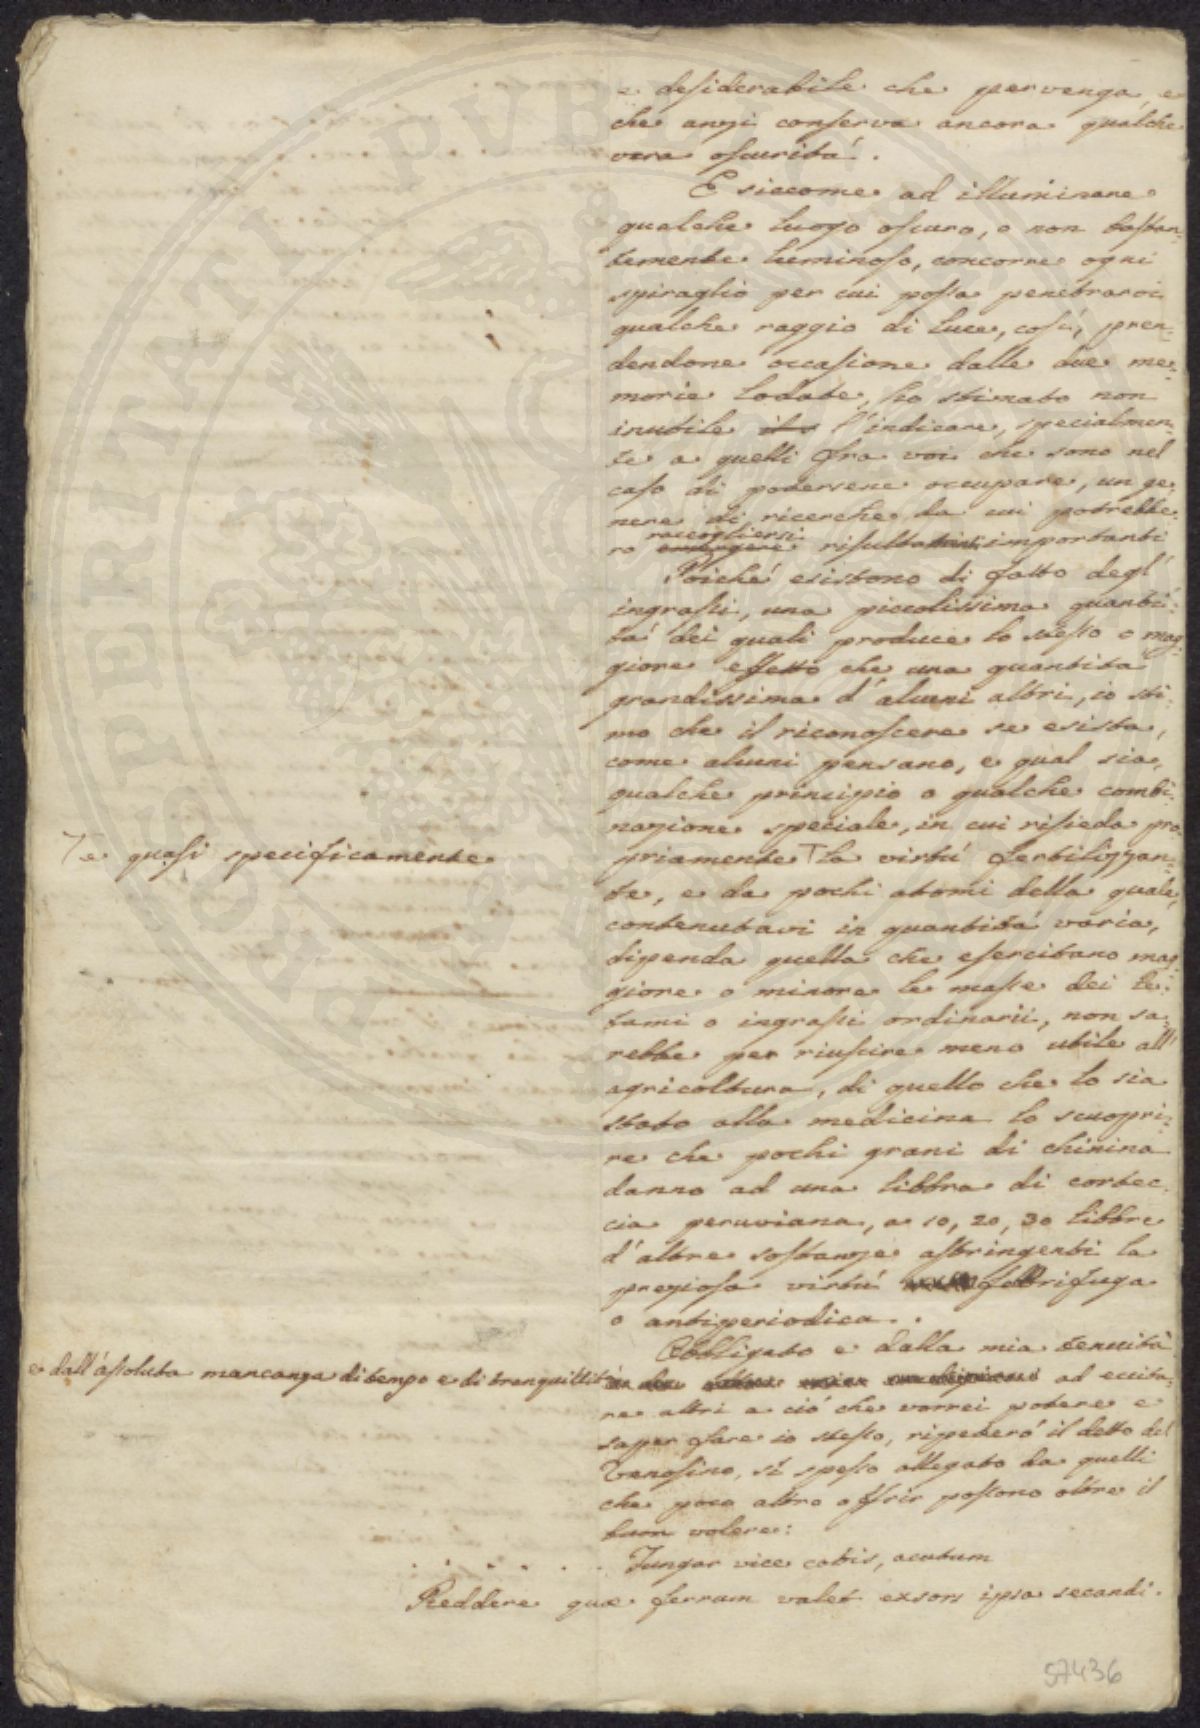 e desiderabile che pervenga, e
che anzi conserva ancora qualche
vera oscurità.
E siccome ad illuminare
qualche luogo oscuro, o non bastan-
temente luminoso, concorre ogni
spiraglio per cui possa penetrarvi
qualche raggio di luce, così, pren-
dendone occasione dalle due me-
morie lodate, ho stimato non
inutile l'indicare, specialmen-
te a quelli fra voi che sono nel
caso di potersene occupare, un ge-
nere di ricerche da cui potrebbe-
raccogliersi
ro emergere risultamenti importanti
Poiché esistono di fatto degl'
ingrassi, una piccolissima quanti-
tà dei quali produce lo stesso o mag-
giore effetto che una quantità
grandissima d'alcuni altri, io sti-
mo che il riconoscere se esista,
come alcuni pensano, e qual sia,
qualche principio o qualche combi-
nazione speciale, in cui risieda pro-
T e quasi specificamente
priamente T la virtù fertilizzan-
te, e da pochi atomi della quale,
contenutavi in quantità varia,
dipenda quella che esercitano mag-
giore o minore le masse dei le-
tami o ingrassi ordinarii, non sa-
rebbe per riuscire meno utile all'
agricoltura, di quello che lo sia
stato alla medicina lo scuopri-
re che pochi grani di chinina
danno ad una libbra di cortec-
cia peruviana, a 10, 20, 30 libbre
d'altre sostanze astringenti la
preziosa virtù febbrifuga
o antiperiodica.
Obbligato e dalla mia tenuità
e dall'assoluta mancanza di tempo e di tranquillità ad eccita-
re altri a ciò che vorrei potere e
saper fare io stesso, ripeterò il detto del
Venosino, sì spesso allegato da quelli
che poco altro offrir possono oltre il
buon volere:
. . . . . . Fungar vice cotis, acutum
Reddere quae ferrum valet exsors ipsa secandi.
57436
PROSPERITATI PVBLICAE